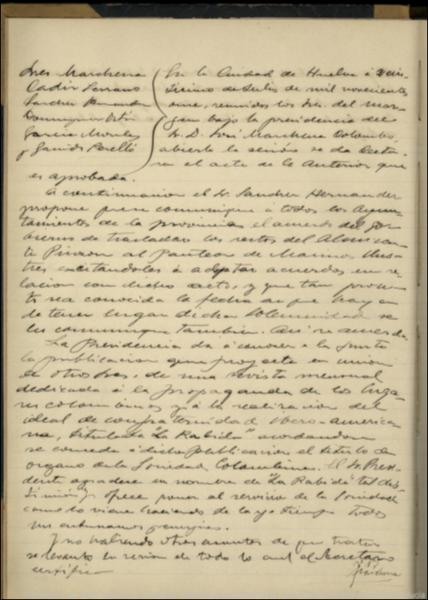 Sres Marchena
Cadiz Serrano
Sanchez Hernandez
Dominguez Ortiz
Garcia Morales
y Garrido Perelló
En la Ciudad de Huelva á
de Julio de mil novecientos
once, reunidos los Sres. del margen
bajo la presidencia del
Sr. D. José Marchena Colombo,
abierta la sesión se da lectura
el acta de la anterior que
es aprobada.
A continuacion el Sr. Sanchez Hernandez
propone que se comunique á todos los Ayuntamientos
de la provincia el acuerdo del Gobierno
de trasladar los restos del Almirante
Pinzon al panteon de Marinos Ilustres
excitandoles á adoptar acuerdos en relacion
con dicho acto, y que tan pronto
sea conocida la fecha en que haya
de tener lugar dicha solemnidad se
les comunique tambien. Asi se acuerda.
La Presidencia da á conocer á la Junta
la publicacion que proyecta en union
de otros Sres. de una revista mensual
dedicada á la propaganda de los lugares
colombinos y á la realizacion del
ideal de confraternidad ibero-americana,
titulada "La Rabida" acordandose
se conceda á dicha publicacion el titulo de
organo de la Sociedad Colombina. El Sr. Presidente
agradece en nombre de "La Rabida" tal
distincion y ofrece poner al servicio de la Sociedad
como lo viene haciendo de largo tiempo todos
sus entusiasmos y energias.
Y no habiendo otros asuntos de que tratar
se levanto la sesion de todo lo cual el Secretario
certifico